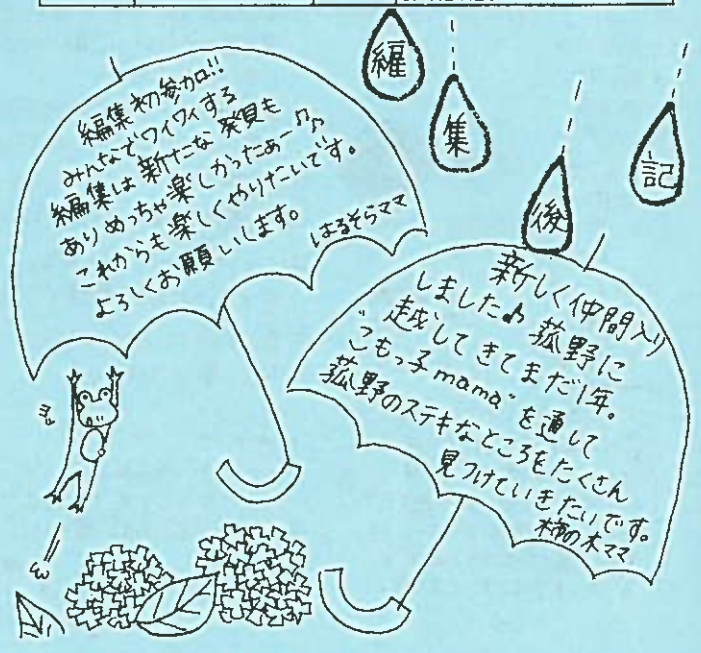 編集後記
編集初参加!!
みんなでワイワイする
編集は新たな発見も
ありめっちゃ楽しかったぁー♪♪
これからも楽しくやりたいです。
よろしくお願いします。
はるそらママ
新しく仲間入り
しました♪ 菰野に
越してきてまだ1年。
"こもっ子mama"を通して
菰野のステキなところをたくさん
見つけていきたいです。
柿の木ママ